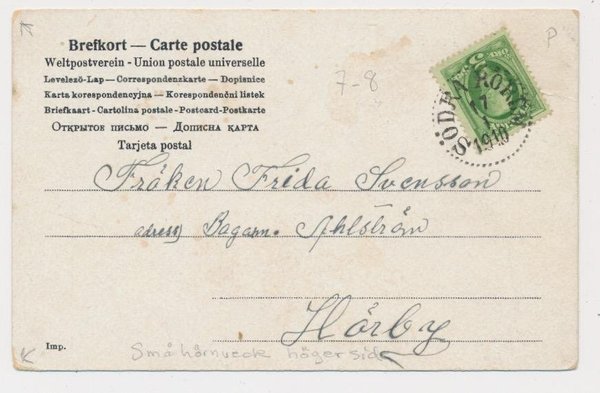 Brefkort — Carte postale
Weltpostverein - Union postale universelle
Levelező-Lap — Correspondenzkarte — Dopisnice
Karta korespondencyjna — Korespondenčni listek
Briefkaart - Cartolina postale - Postcard-Postkarte
Открытое письмо — Дописна карта
Tarjeta postal
7-8
P
7
1
1910
Fröken Frida Svensson
adress Bagarn. Ahlström
Hörby
Imp.
Små hörnveck höger sida